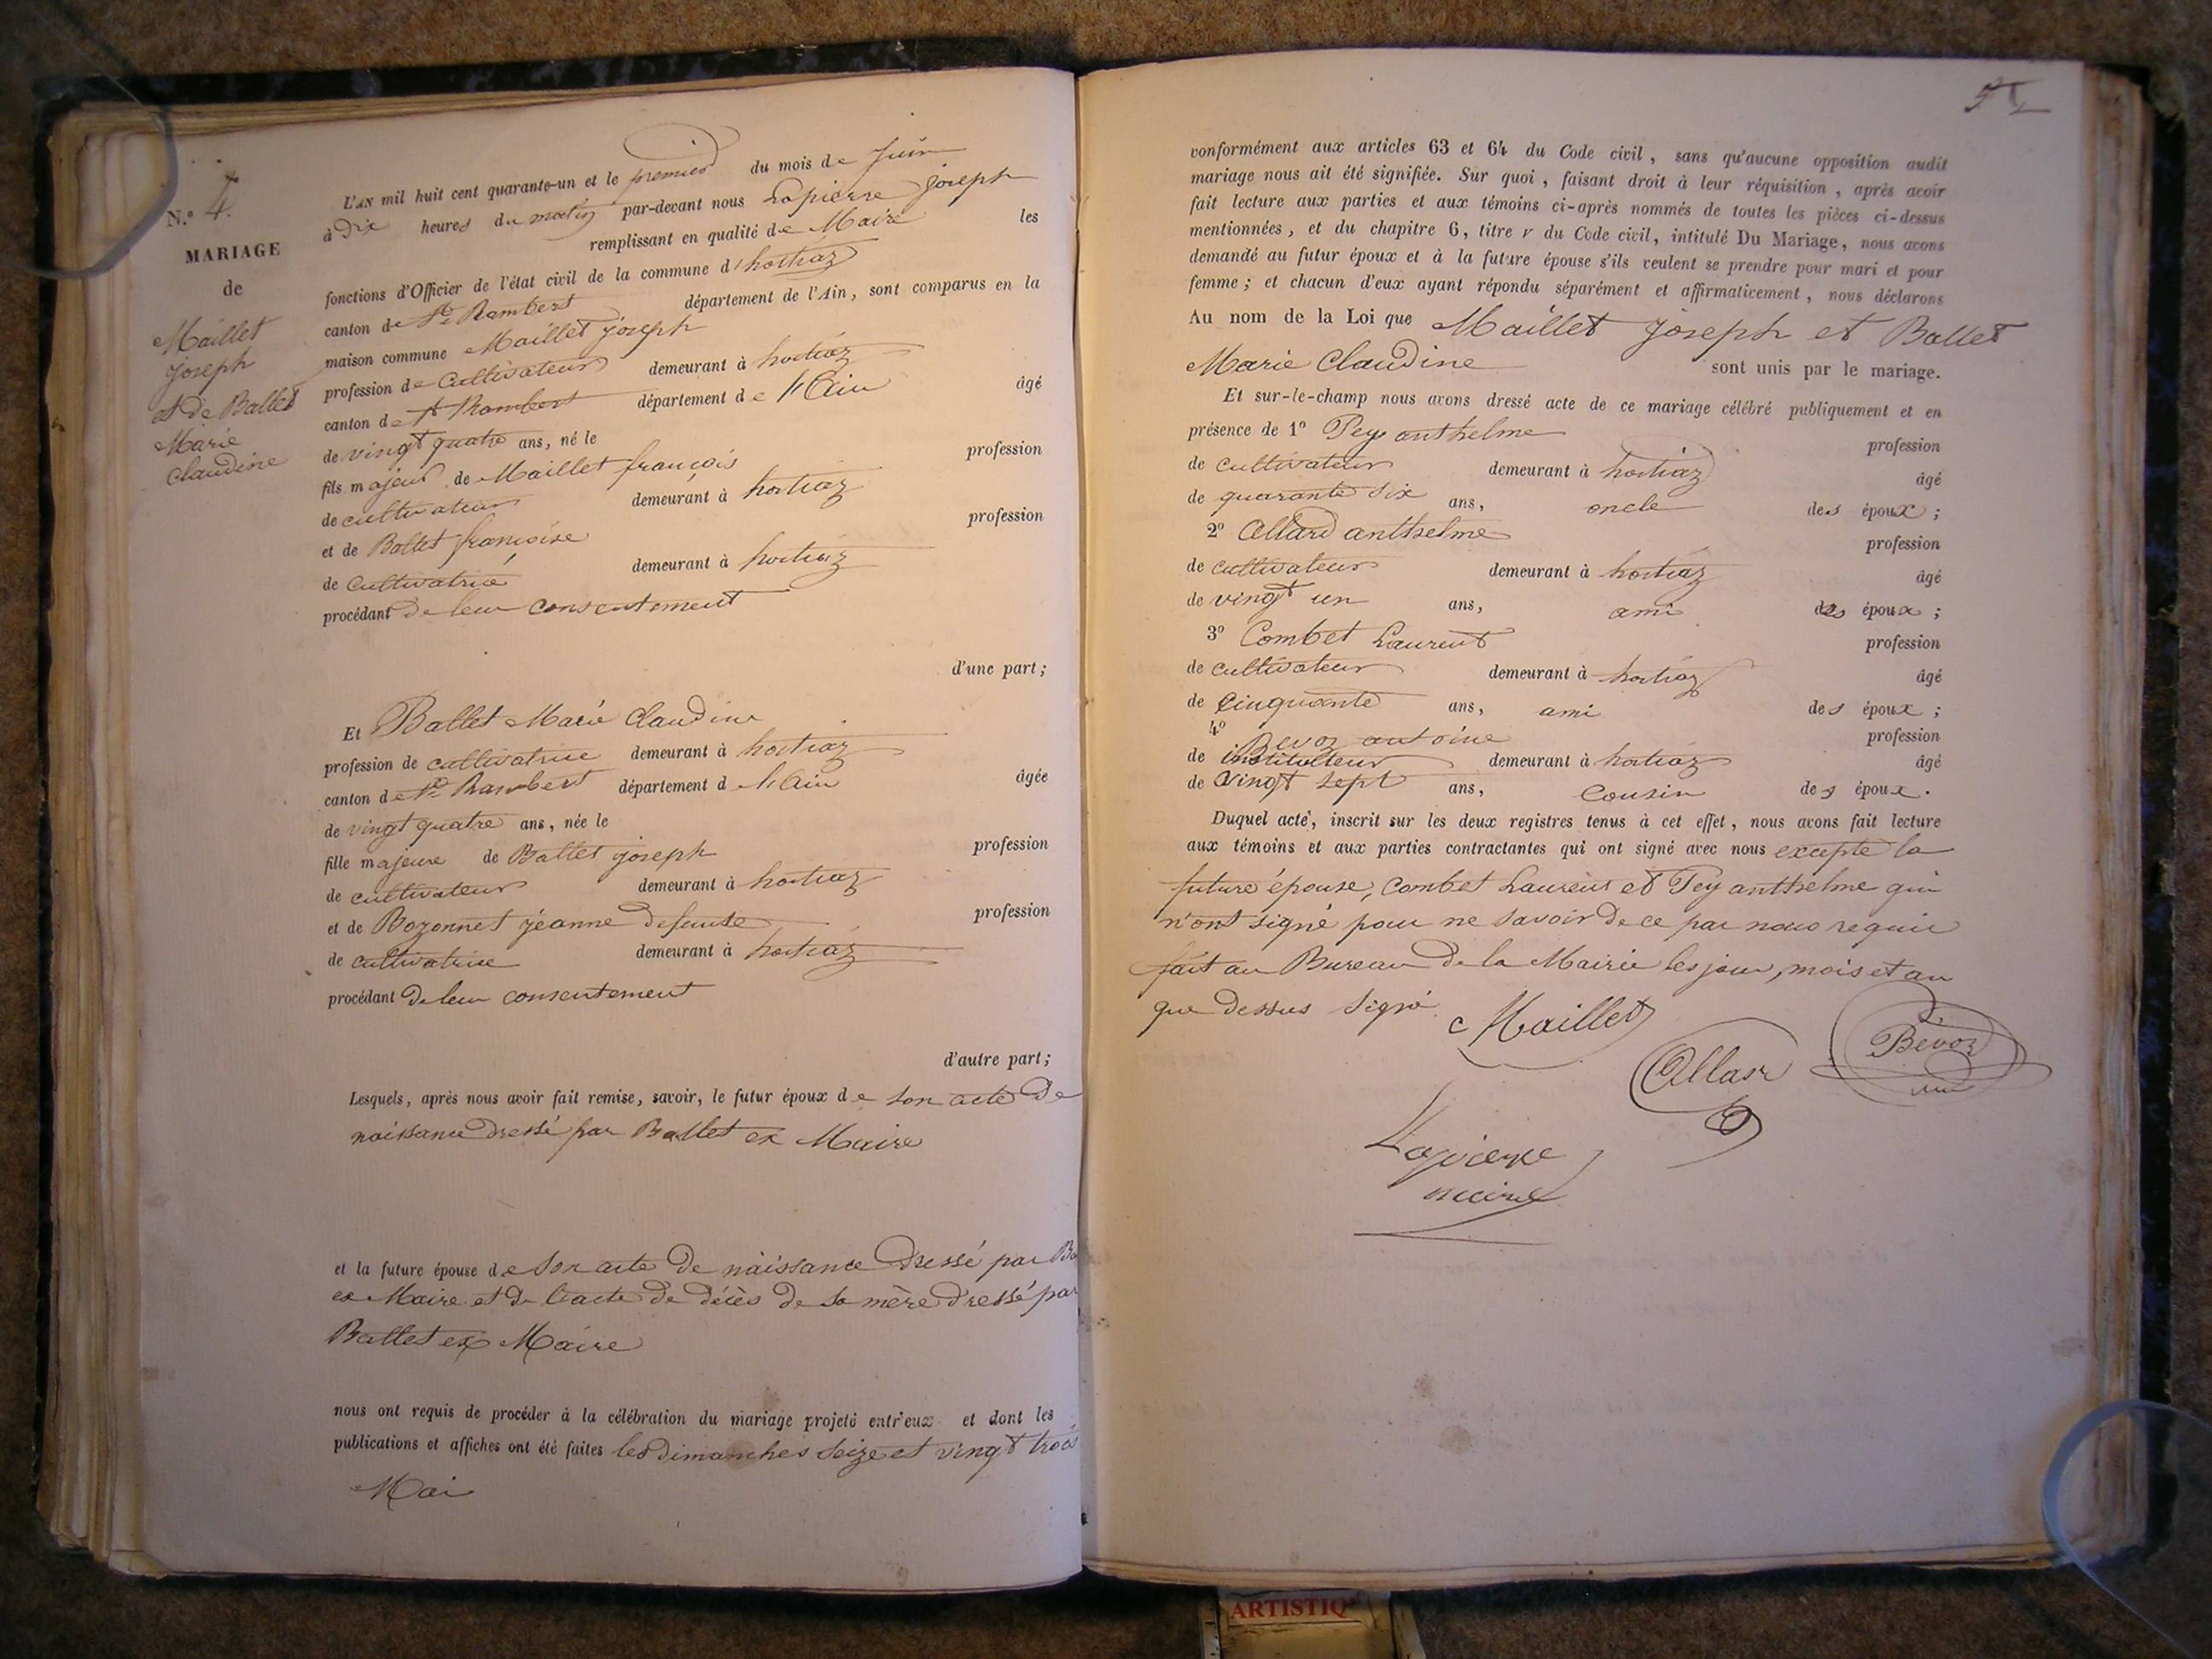 N.o 4.
MARIAGE
de
Maillet
Joseph
et de Ballet
Marie
Claudine
L'AN mil huit cent quarante-un et le premier du mois de Juin
à Dix heures du matin par-devant nous Lapierre Joseph
remplissant en qualité de Maire les
fonctions d'Officier de l'état civil de la commune d'hostiaz
canton de St Rambert département de l'Ain, sont comparus en la
maison commune Maillet joseph
profession de Cultivateur demeurant à hostiaz
canton de St Rambert département de l'Ain âgé
de vingt quatre ans, né le
fils majeur de Maillet françois profession
de cultivateur demeurant à hostiaz
et de Ballet françoise profession
de Cultivatrice demeurant à hostiaz
procédant de leur consentement
d'une part;
Et Ballet Marie Claudine
profession de cultivatrice demeurant à hostiaz
canton de St Rambert département d l'Ain âgée
de vingt quatre ans, née le
fille majeure de Ballet joseph profession
de cultivateur demeurant à hostiaz
et de Bozonnet jéanne defunte profession
de cultivatrice demeurant à hostiaz
procédant de leur consentement
d'autre part;
Lesquels, après nous avoir fait remise, savoir, le futur époux de son acte de
naissance dressé par Ballet ex Maire
et la future épouse de son acte de naissance dressé par Ba
ex Maire et de l'acte de décès de sa mère dressé par
Ballet ex Maire
nous ont requis de procéder à la célébration du mariage projeté entr'eux et dont les
publications et affiches ont été faites les dimanches seize et vingt trois
Mai
conformément aux articles 63 et 64 du Code civil, sans qu'aucune opposition audit
mariage nous ait été signifiée. Sur quoi, faisant droit à leur réquisition, après avoir
fait lecture aux parties et aux témoins ci-après nommés de toutes les pièces ci-dessus
mentionnées, et du chapitre 6, titre v du Code civil, intitulé Du Mariage, nous avons
demandé au futur époux et à la future épouse s'ils veulent se prendre pour mari et pour
femme; et chacun d'eux ayant répondu séparément et affirmativement, nous déclarons
Au nom de la Loi que Maillet joseph et Ballet
Marie Claudine sont unis par le mariage.
Et sur-le-champ nous avons dressé acte de ce mariage célébré publiquement et en
présence de 1o Pey anthelme profession
de cultivateur demeurant à hostiaz âgé
de quarante six ans, oncle des époux;
2o Allard anthelme profession
de cultivateur demeurant à hostiaz âgé
de vingt un ans, ami des époux;
3o Combet Laurent profession
de cultivateur demeurant à hostiaz âgé
de Cinquante ans, ami des époux;
4o Bevoz antoine profession
de instituteur demeurant à hostiaz âgé
de vingt sept ans, Cousin des époux.
Duquel acte, inscrit sur les deux registres tenus à cet effet, nous avons fait lecture
aux témoins et aux parties contractantes qui ont signé avec nous excepté la
future épouse, Combet Laurent et Pey anthelme qui
n'ont signé pour ne savoir de ce par nous requis
fait au Bureau de la Mairie les jour, mois et an
que dessus signé. Maillet
Bévoz
Allard
Lapierre
maire
ARTISTIQ